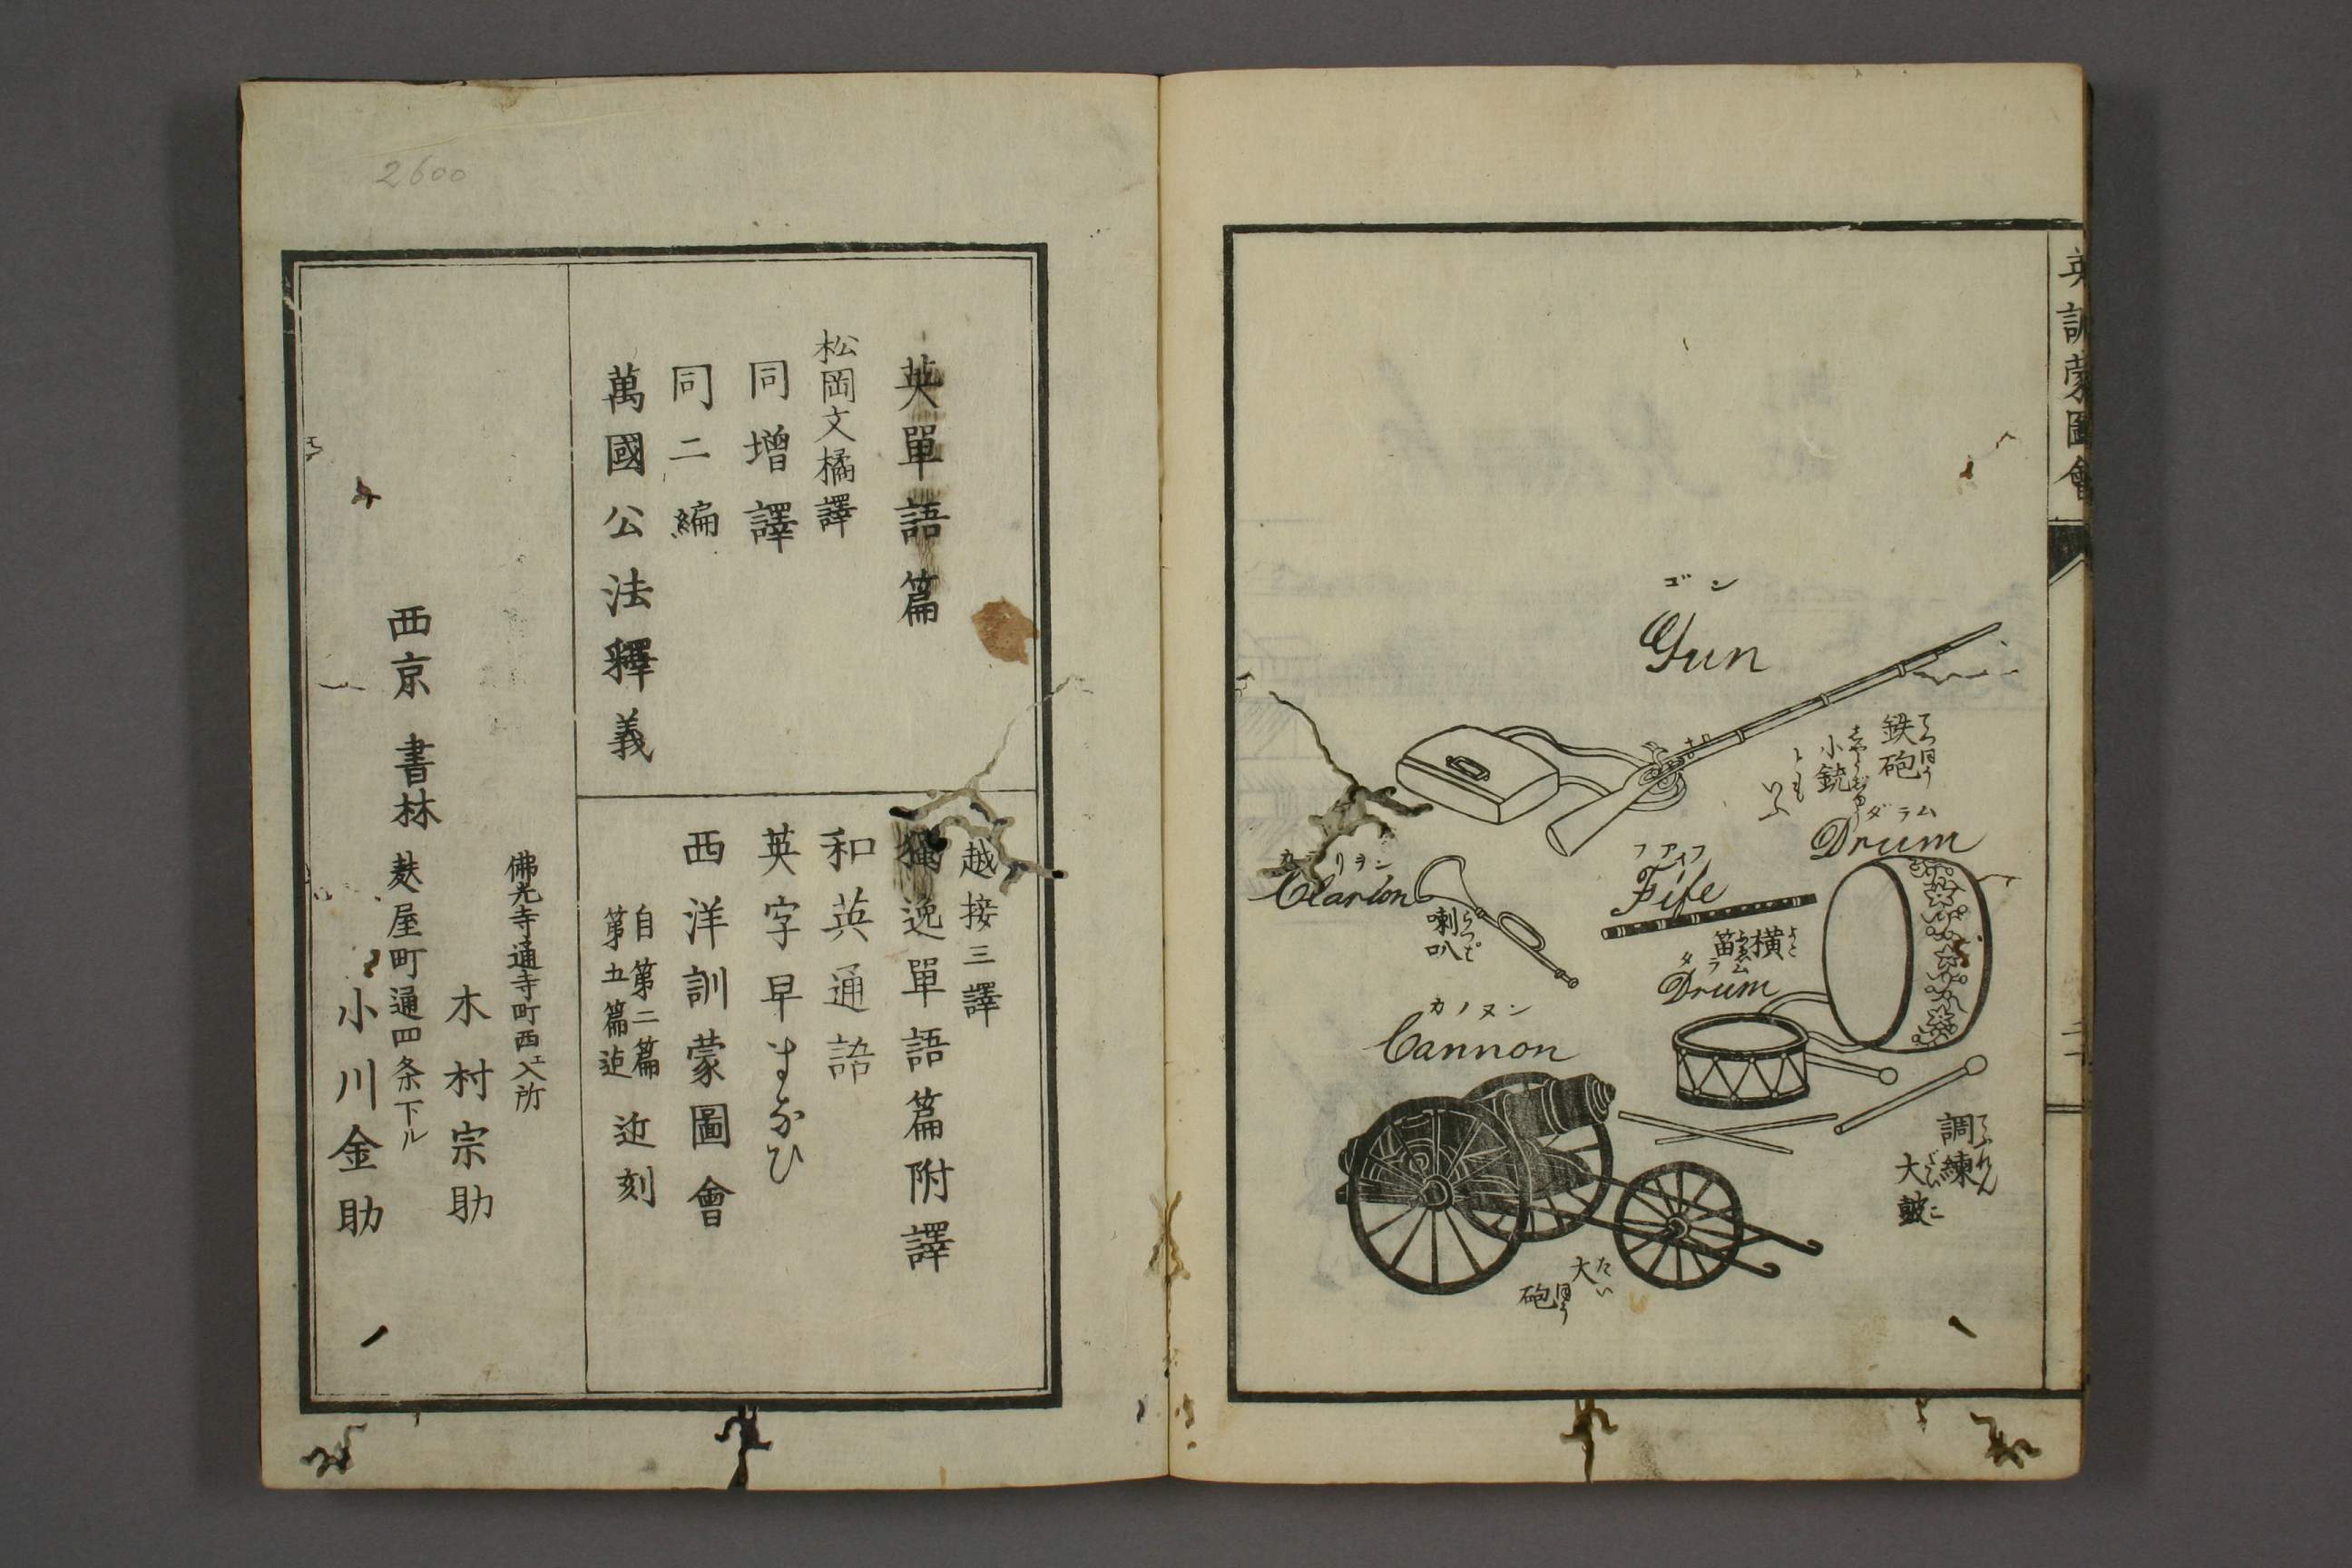 英訓蒙圖會
ゴン
Gun
鉄砲
てつほう
小銃
ともいふ
ダラム
Drum
フアイフ
Fife
横笛
よこ
カラリヲン
Clarion
喇叭
らつぱ
ダラム
Drum
調練
てふれん
大皷
だいこ
カノヌン
Cannon
大砲
たいほう
2600
英單語篇
松岡文橘譯
同增譯
同二編
萬國公法釋義
越接三譯
獨逸單語篇附譯
和英通語
英字早まなひ
西洋訓蒙圖會
自第二篇
第五篇迠
近刻
佛光寺通寺町西エ入所
木村宗助
西京 書林
麸屋町通四条下ル
小川金助